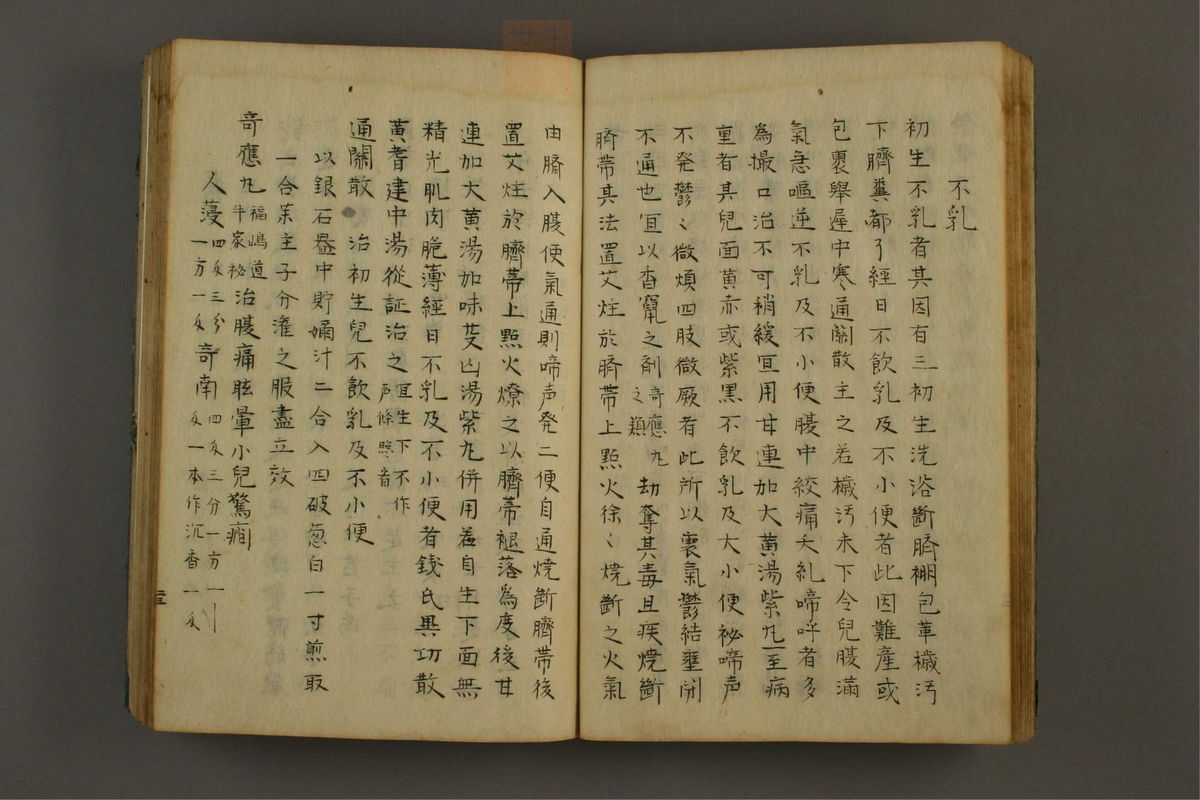 不乳
初生不乳者其因有三初生洗浴斷臍裯包革穢汚
下臍糞都了經日不飲乳及不小便者此因難産或
包裹舉遅中寒通関散主之若穢汚未下令兒腹滿
氣急嘔逆不乳及不小便腹中絞痛夭糺啼呼者多
為撮口治不可稍緩宜用甘連加大黄湯紫丸一至病
重者其兒面黄赤或紫黒不飲乳及大小便祕啼声
不発鬱〻微煩四肢微厥者此所以裏氣鬱結壅閉
不通也宜以杳竄之剤 竒應丸之類 劫奪其毒且疾燒斷
臍帯其法置艾炷於臍帯上點火徐〻燒斷之火氣
由臍入腹便氣通則啼声発二便自通燒斷臍帯後
置艾炷於臍蒂上點火燎之以臍蒂褪落為度後甘
連加大黄湯加味芆凶湯紫丸併用若自生下面無
精光肌肉脆薄經日不乳及不小便者錢氏異功散
黄耆建中湯從証治之 宜生下不作声條照音
通関散 治初生兒不飲乳及不小便
以銀石噐中貯嬭汁二合入四破葱白一寸煎取
一合茱主子分潅之服盡立效
竒應丸 福嶋道牛家祕 治腹痛眩暈小兒驚癇
人薓 四匁三分一方一匁 竒南 四匁三分一方一匁一本作沉香一匁